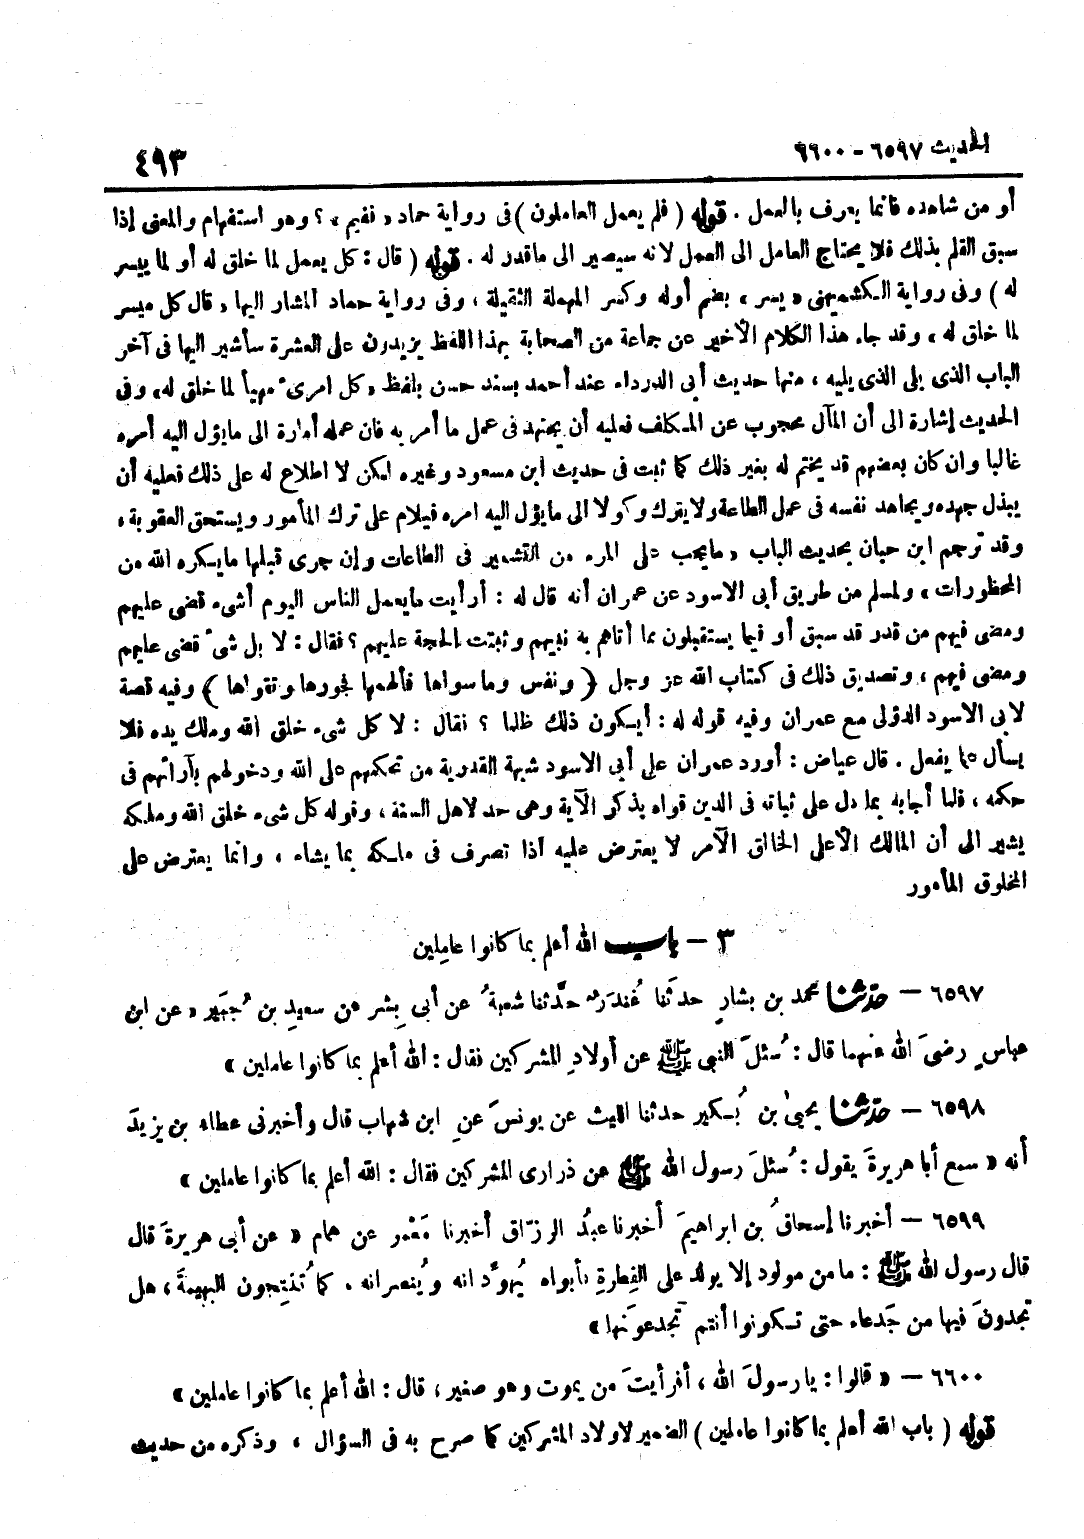 الحديث ٦٥٩٧ - ٦٦٠٠
٤٩٣
أو من شاهده فانما يعرف بالعمل . قوله ( فلم يعمل العاملون ) فى رواية حماد « ففيم » ؟ وهو استفهام والمعنى إذا
سبق القلم بذلك فلا يحتاج العامل الى العمل لانه سيصير الى ماقدر له . قوله ( قال : كل يعمل لما خلق له أو لما ييسر
له ) وفى رواية الكشميهنى « يسر » بضم أوله وكسر المهملة الثقيلة ، وفى رواية حماد المشار اليها « قال كل ميسر
لما خلق له ، وقد جاء هذا الكلام الأخير عن جماعة من الصحابة بهذا اللفظ يزيدون على العشرة سأشير اليها فى آخر
الباب الذى يلى الذى يليه ، منها حديث أبى الدرداء عند أحمد بسند حسن بلفظ « كل امرىء مهيأ لما خلق له » وفى
الحديث إشارة الى أن المآل محجوب عن المكلف فعليه أن يجتهد فى عمل ما أمر به فان عمله أمارة الى مايؤل اليه أمره
غالبا وان كان بعضهم قد يختم له بغير ذلك كما ثبت فى حديث ابن مسعود وغيره لكن لا اطلاع له على ذلك فعليه أن
يبذل جهده ويجاهد نفسه فى عمل الطاعة ولا يترك وكولا الى مايؤل اليه امره فيلام على ترك المأمور ويستحق العقوبة ،
وقد ترجم ابن حبان بحديث الباب « مايجب على المرء من التشمير فى الطاعات وإن جرى قبلها مايكره الله من
المحظورات » ولمسلم من طريق أبى الاسود عن عمران أنه قال له : أرأيت مايعمل الناس اليوم أشىء قضى عليهم
ومضى فيهم من قدر قد سبق أو فيما يستقبلون بما أتاهم به نبيهم وثبتت الحجة عليهم ؟ فقال : لا بل شىء قضى عليهم
ومضى فيهم ، وتصديق ذلك فى كتاب الله عز وجل ( ونفس وما سواها فألهمها فجورها وتقواها ) وفيه قصة
لابى الاسود الدؤلى مع عمران وفيه قوله له : أيكون ذلك ظلما ؟ فقال : لا كل شىء خلق الله وملك يده فلا
يسأل عما يفعل . قال عياض : أورد عمران على أبى الاسود شبهة القدرية من تحكمهم على الله ودخولهم بآرائهم فى
حكمه ، فلما أجابه بما دل على ثباته فى الدين قواه بذكر الآية وهى حد لاهل السنة ، وقوله كل شىء خلق الله وملكه
يشير الى أن المالك الأعلى الخالق الآمر لا يعترض عليه اذا تصرف فى ملكه بما يشاء ، وانما يعترض على
المخلوق المأمور
٣ - باب الله أعلم بما كانوا عاملين
٦٥٩٧ - حدثنا محمد بن بشار حدثنا غُندَر حدّثنا شعبةُ عن أبى بِشر عن سعيدِ بن جُبَير « عن ابن
عباسٍ رضىَ الله عنهما قال : سُئلَ النبى ﷺ عن أولادِ المشركين فقال : الله أعلم بما كانوا عاملين »
٦٥٩٨ - حدثنا يحيىٰ بن بُكير حدثنا الليث عن يونسَ عنِ ابن شهاب قال وأخبرنى عطاء بن يزيدَ
أنه « سمع أبا هريرةَ يقول : سُئلَ رسول الله ﷺ عن ذرارى المشركين فقال : الله أعلم بما كانوا عاملين »
٦٥٩٩ - أخبرنا إسحاقُ بن ابراهيمَ أخبرنا عبدُ الرزّاق أخبرنا مَعْمر عن همام « عن أبى هريرةَ قال
قال رسول الله ﷺ : ما من مولود إلا يولد على الفِطرةِ فأبواه يُهوِّدانه ويُنصرانه . كما تُنتِجون البهيمةَ ، هل
تجدونَ فيها من جَدعاء حتى تكونوا أنتم تَجدعونَها »
٦٦٠٠ - « قالوا : يا رسولَ الله ، أفرأيتَ من يموت وهو صغير ، قال : الله أعلم بما كانوا عاملين »
قوله ( باب الله أعلم بما كانوا عاملين ) الضمير لاولاد المشركين كما صرح به فى السؤال ، وذكره من حديث